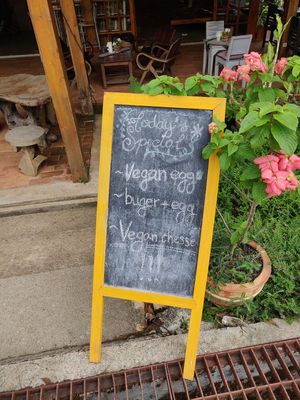 Today's
Special
~Vegan egg
~buger+egg
~Vegan chesse
!!!